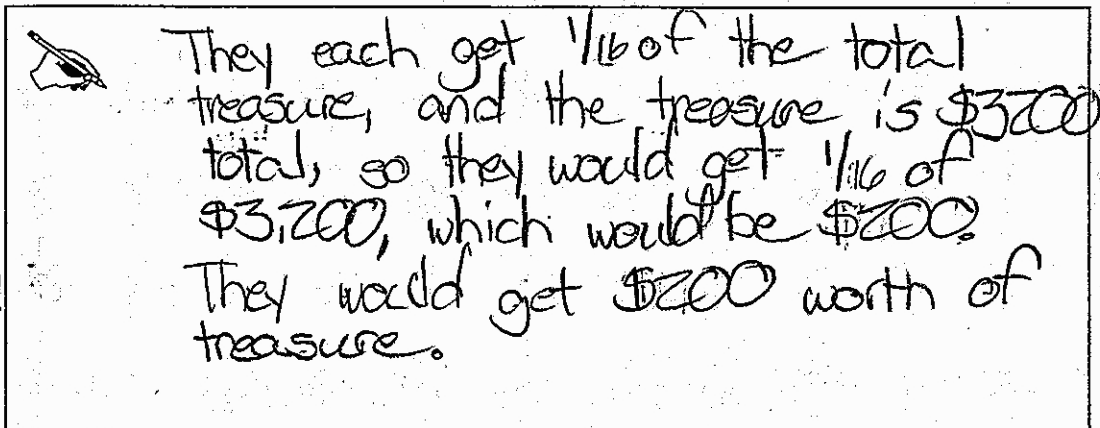 They each get 1/16 of the total
treasure, and the treasure is $3200
total, so they would get 1/16 of
$3,200, which would be $200.
They would get $200 worth of
treasure.